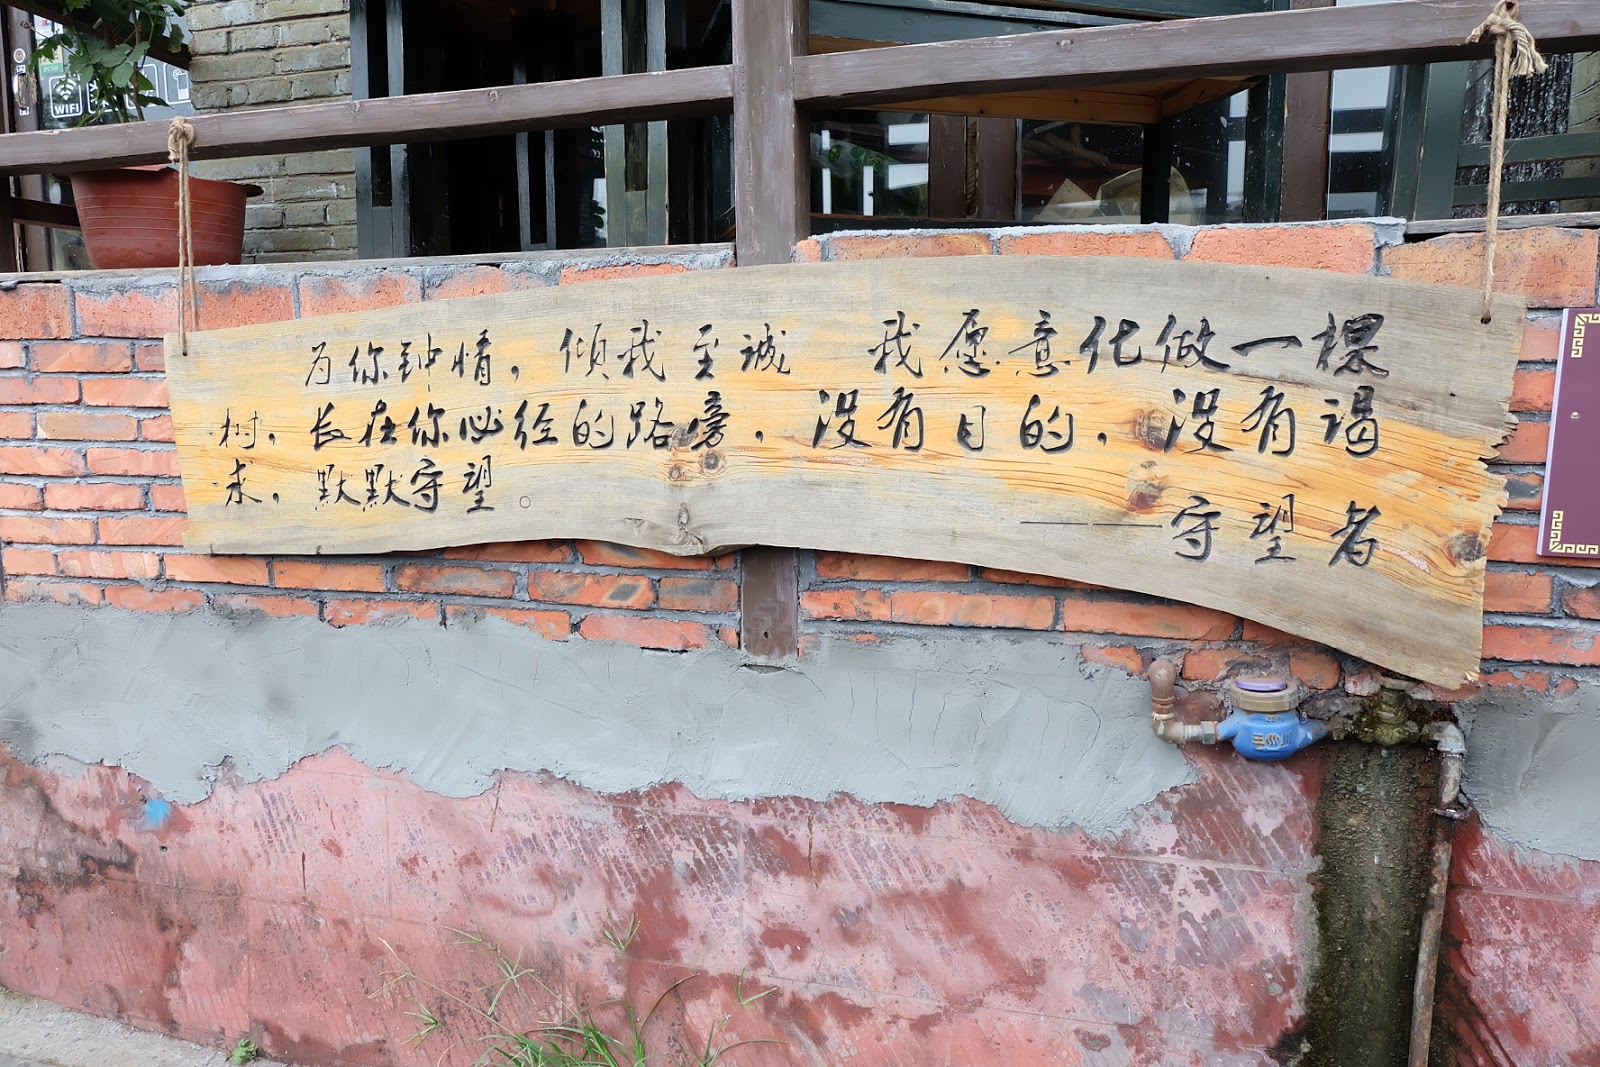 WIFI
为你钟情，倾我至诚 我愿意化做一棵
树，长在你必经的路旁，没有目的，没有谒
求，默默守望。
——守望者